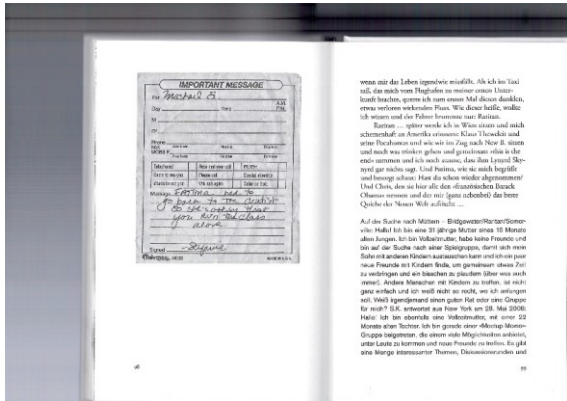 IMPORTANT MESSAGE
For Michael B.
A.M.
Day Time P.M.
M
Of
Phone
Message FATIMA had to
go back to the dentist
so she's asking that
you run the class
alone.
Signed
MADE IN U.S.A.
98
wenn mir das Leben irgendwie missfällt. Als ich im Taxi
saß, das mich vom Flughafen zu meiner ersten Unter-
kunft brachte, querte ich zum ersten Mal diesen dunklen,
etwas verloren wirkenden Fluss. Wie dieser heiße, wollte
ich wissen und der Fahrer brummte nur: Raritan.
Raritan … später werde ich in Wien sitzen und mich
schemenhaft an Amerika erinnern: Klaus Theweleit und
seine Pocahontas und wie wir im Zug nach New B. sitzen
und noch was trinken gehen und gemeinsam »this is the
end« summen und ich noch staune, dass ihm Lynyrd Sky-
nyrd gar nichts sagt. Und Fatima, wie sie mich begrüßt
und besorgt schaut: Hast du schon wieder abgenommen?
Und Chris, den sie hier alle den »französischen Barack
Obama« nennen und der mir (ganz nebenbei) das beste
Quiche der Neuen Welt auftischt …
Auf der Suche nach Müttern – Bridgewater/Raritan/Somer-
ville: Hallo! Ich bin eine 31 jährige Mutter eines 18 Monate
alten Jungen. Ich bin Vollzeitmutter, habe keine Freunde und
bin auf der Suche nach einer Spielgruppe, damit sich mein
Sohn mit anderen Kindern austauschen kann und ich ein paar
neue Freunde mit Kindern finde, um gemeinsam etwas Zeit
zu verbringen und ein bisschen zu plaudern (über was auch
immer). Andere Menschen mit Kindern zu treffen, ist nicht
ganz einfach und ich weiß nicht so recht, wo ich anfangen
soll. Weiß irgendjemand einen guten Rat oder eine Gruppe
für mich? S.K. antwortet aus New York am 28. Mai 2008:
Hallo! Ich bin ebenfalls eine Vollzeitmutter, mit einer 22
Monate alten Tochter. Ich bin gerade einer »Meetup Moms«-
Gruppe beigetreten, die einem viele Möglichkeiten anbietet,
unter Leute zu kommen und neue Freunde zu treffen. Es gibt
eine Menge interessanter Themen, Diskussionsrunden und
99